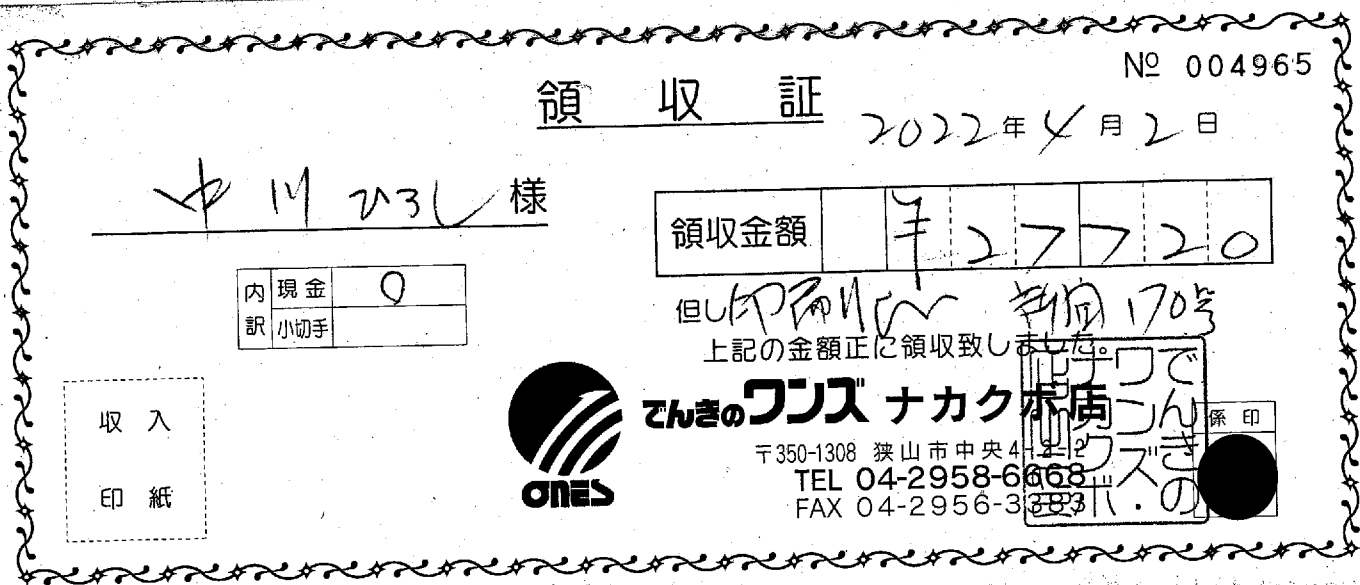 № 004965
領収証
2022年4月2日
中川ひろし様
領収金額 ¥27720
内訳 現金 0
小切手
但し印刷代 新聞170号
上記の金額正に領収致しました。
収入
印紙
でんきのワンズ ナカクボ店
〒350-1308 狭山市中央4-2-2
TEL 04-2958-6668
FAX 04-2956-3383
ONES
係印
でんきの
ワンズ・
ナカクボ